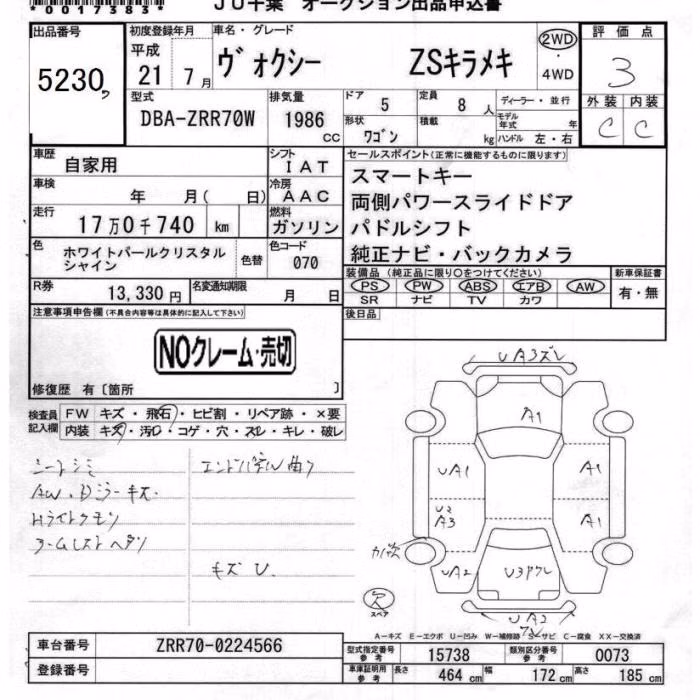 *00173835*
JU千葉 オークション出品申込書
出品番号 初度登録年月 車名・グレード 評価点
5230 平成 21 7月 ヴォクシー ZSキラメキ 2WD ・ 4WD 3
型式 排気量 ドア 5 定員 8 人 ディーラー・並行 外装 内装
DBA-ZRR70W 1986 cc 形状 ワゴン 積載 kg モデル年式 年 ハンドル 左・右 C C
車歴 自家用 シフト IAT セールスポイント(正常に機能するものに限ります)
車検 年 月( 日) 冷房 AAC スマートキー
走行 17万0千740 km 燃料 ガソリン 両側パワースライドドア
色 ホワイトパールクリスタルシャイン 色替 色コード 070 パドルシフト
純正ナビ・バックカメラ
R券 13,330円 名変通知期限 月 日 装備品(純正品に限り○をつけてください) 新車保証書
PS PW ABS エアB AW 有・無
SR ナビ TV カワ
注意事項申告欄(不具合内容等は具体的に記入して下さい) 後日品
NOクレーム・売切
修復歴 有〔箇所 〕
検査員記入欄 FW キズ・飛石・ヒビ割・リペア跡・×要
内装 キズ・汚レ・コゲ・穴・スレ・キレ・破レ
シートシミ エンドパネル曲り
AW・Dミラーキズ
Hライトクモリ
アームレストヘタリ
キズU
UA3ズレ
A1
UA1 A1
U2
A3 A1
UA2 U3
UA2
スペア
A-キズ E-エクボ U-凹み W-補修跡 S-サビ C-腐食 XX-交換済
車台番号 ZRR70-0224566 型式指定番号 参考 15738 類別区分番号 参考 0073
登録番号 車庫証明用 参考 長さ 464 cm 幅 172 cm 高さ 185 cm